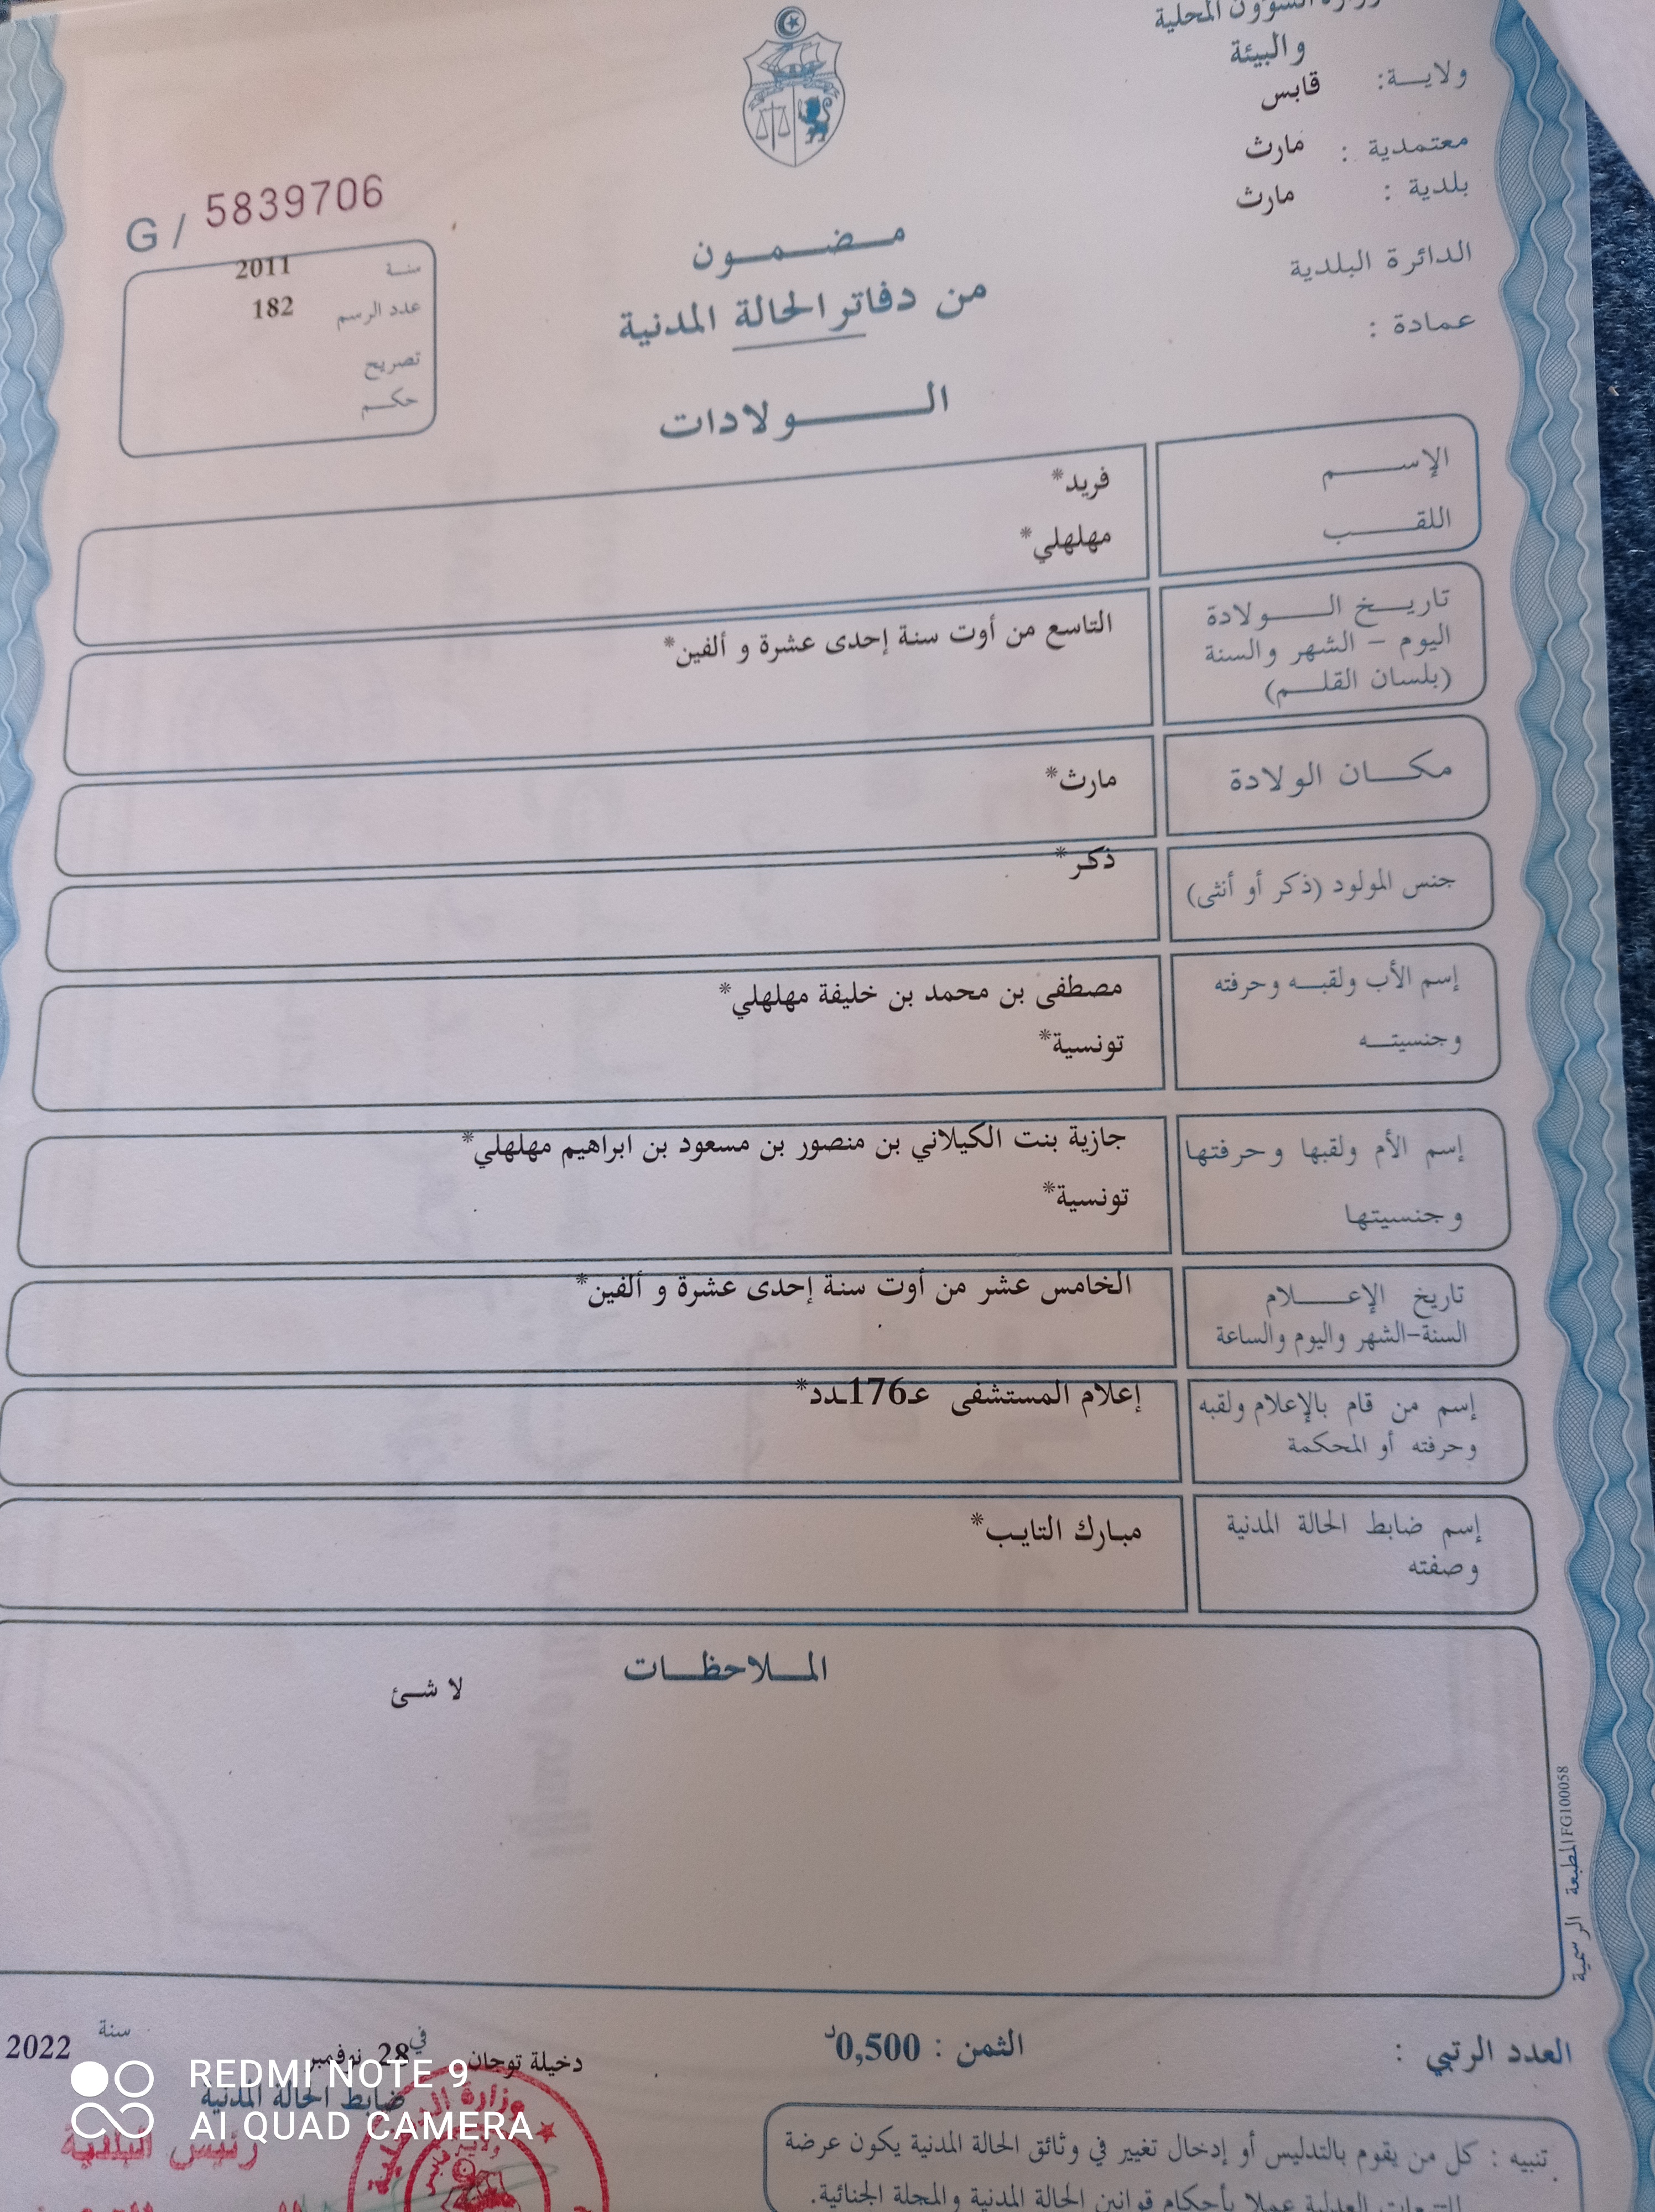 وزارة الشؤون المحلية
والبيئة
ولايــة: قابس
معتمدية : مارث
بلدية : مارث
الدائرة البلدية
عمادة :
G / 5839706
سنة 2011
عدد الرسم 182
تصريح
حكم
مضمون
من دفاتر الحالة المدنية
الولادات
الإسم فريد*
اللقب مهلهلي*
تاريخ الولادة
اليوم - الشهر والسنة
(بلسان القلم)
التاسع من أوت سنة إحدى عشرة و ألفين*
مكان الولادة مارث*
جنس المولود (ذكر أو أنثى) ذكر*
إسم الأب ولقبه وحرفته
وجنسيته
مصطفى بن محمد بن خليفة مهلهلي*
تونسية*
إسم الأم ولقبها وحرفتها
وجنسيتها
جازية بنت الكيلاني بن منصور بن مسعود بن ابراهيم مهلهلي*
تونسية*
تاريخ الإعلام
السنة-الشهر واليوم والساعة
الخامس عشر من أوت سنة إحدى عشرة و ألفين*
إسم من قام بالإعلام ولقبه
وحرفته أو المحكمة
إعلام المستشفى عـ176ـدد*
إسم ضابط الحالة المدنية
وصفته
مبارك التايب*
الملاحظات
لا شئ
المطبعة الرسمية FG100058
العدد الرتبي :
الثمن : 0,500د
دخيلة توجان في 28 نوفمبر سنة 2022
ضابط الحالة المدنية
رئيس البلدية
وزارة
ولاية قابس
تنبيه : كل من يقوم بالتدليس أو إدخال تغيير في وثائق الحالة المدنية يكون عرضة
للتتبعات العدلية عملا بأحكام قوانين الحالة المدنية والمجلة الجنائية.
REDMI NOTE 9
AI QUAD CAMERA